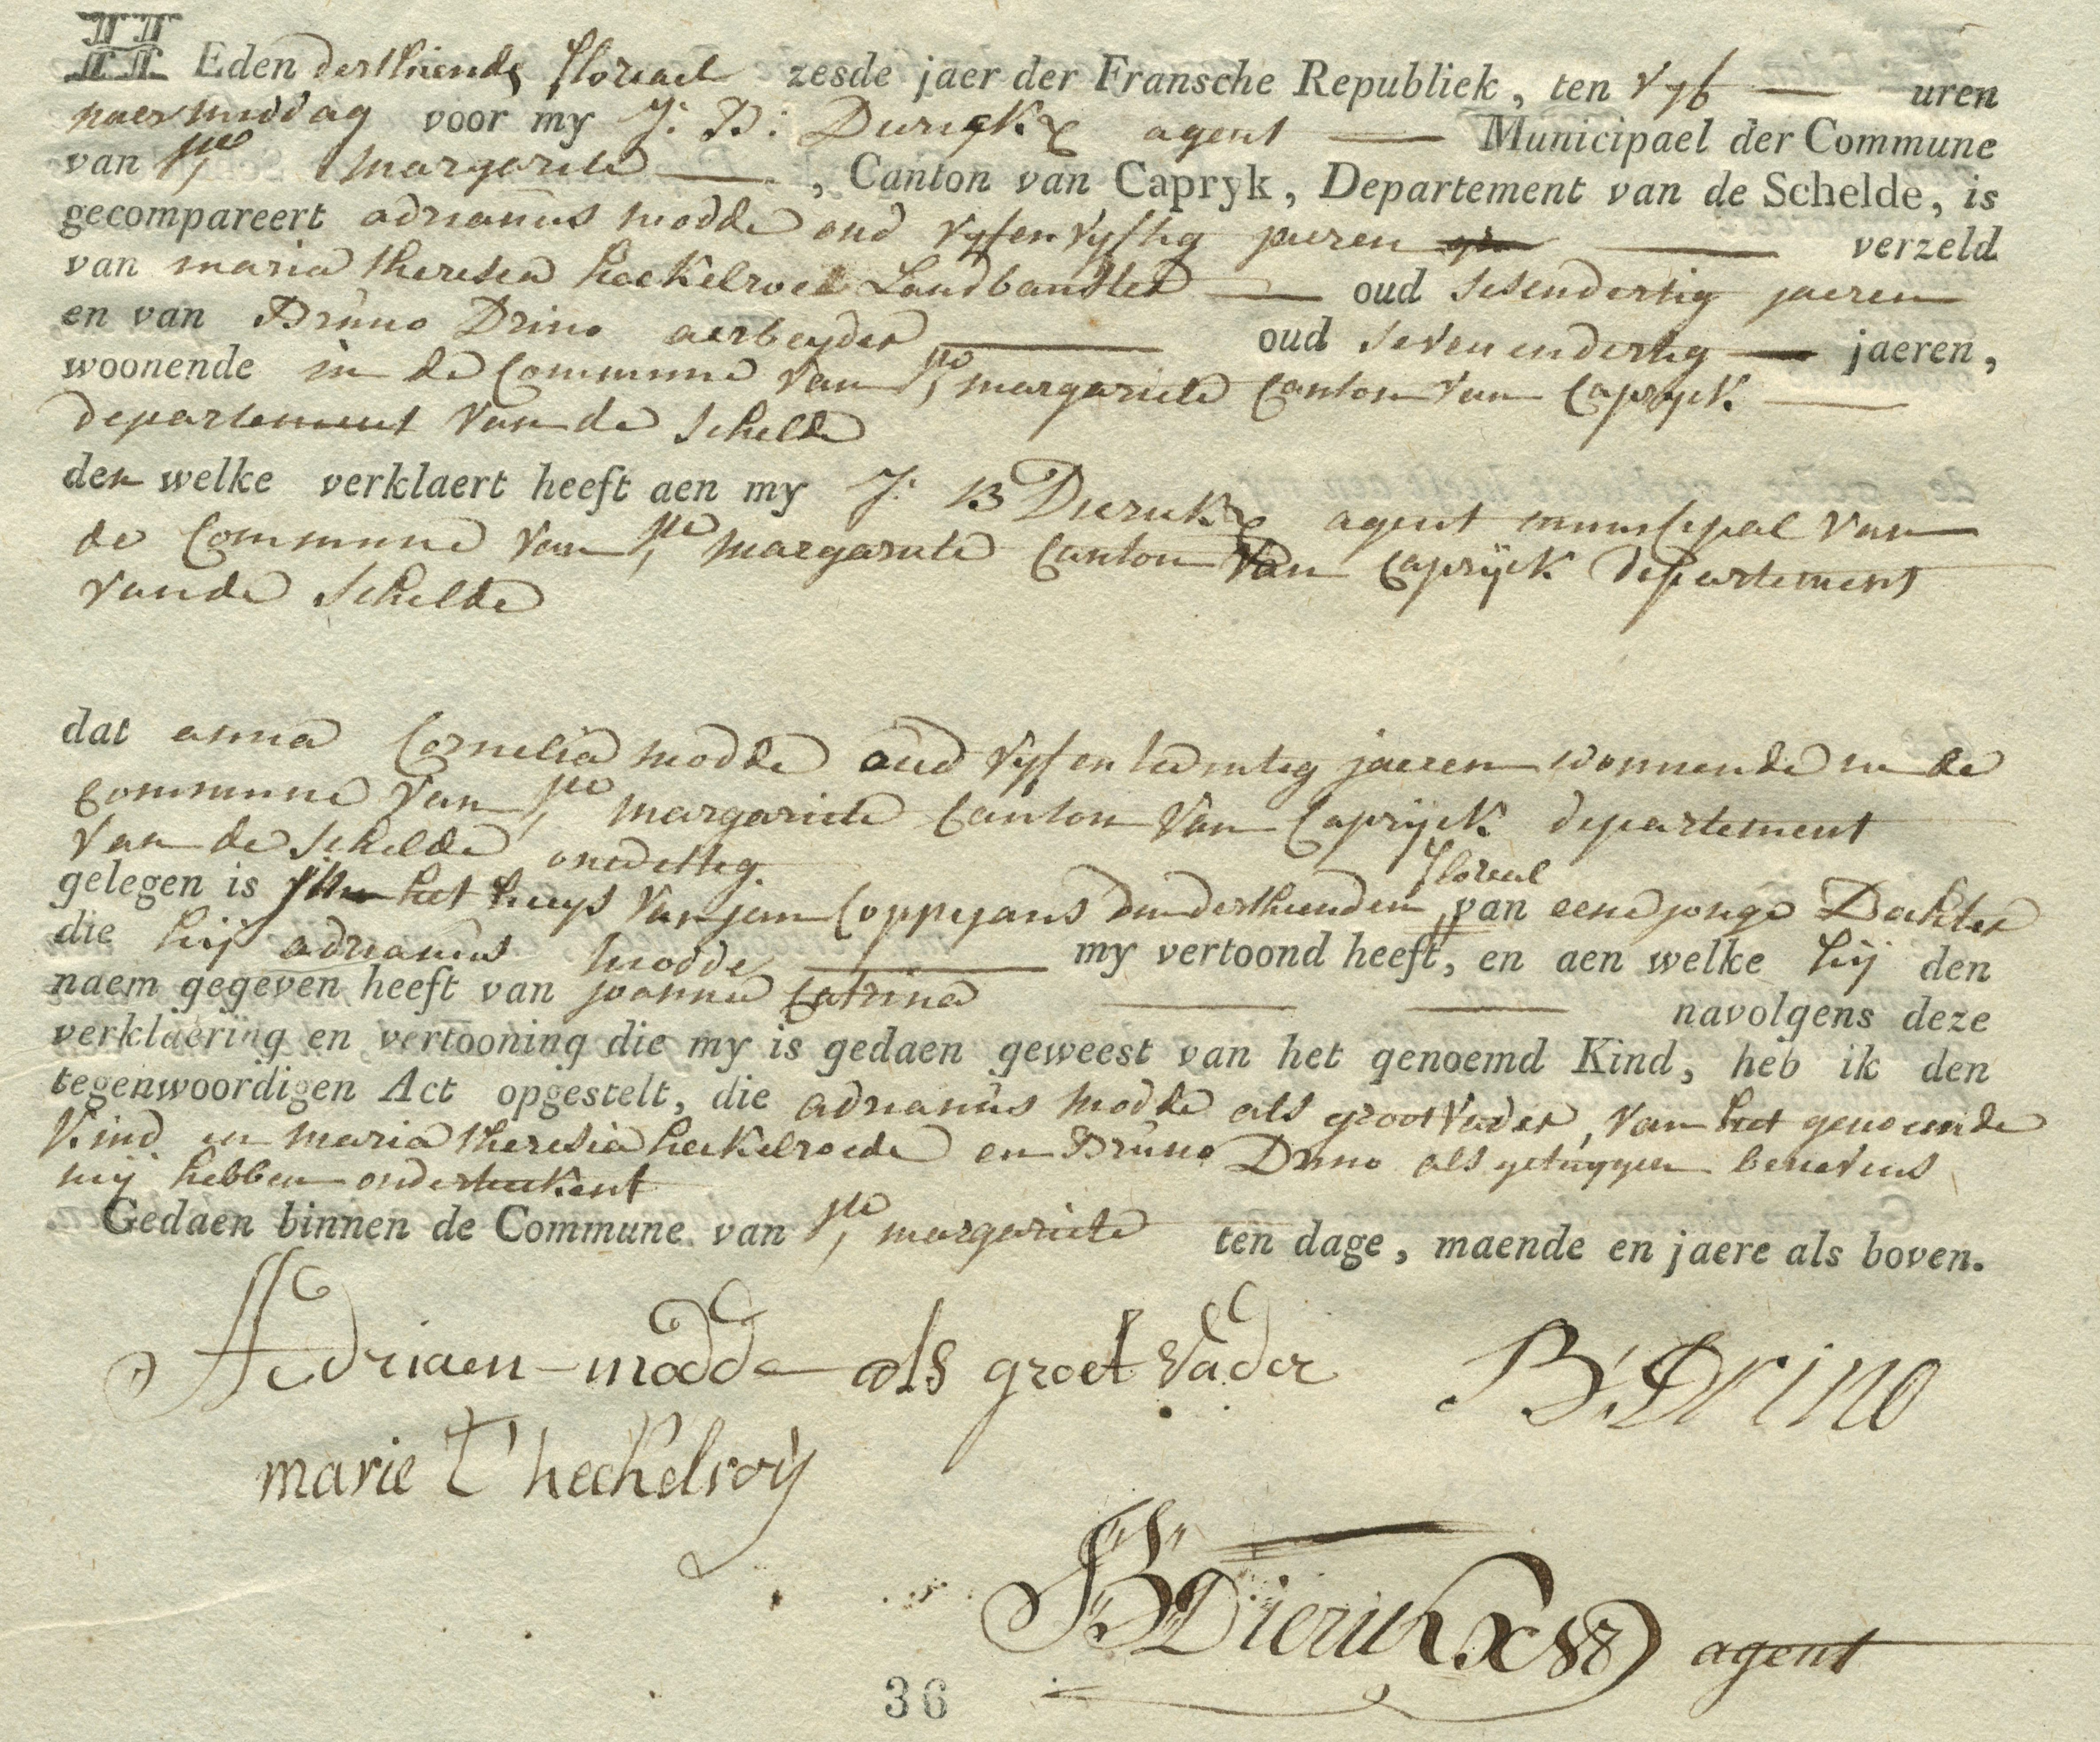 HEden derthiende floreael zesde jaer der Fransche Republiek, ten vyf uren
naermiddag voor my J: B: Dierickx agent Municipael der Commune
van Ste margariete, Canton van Capryk, Departement van de Schelde, is
gecompareert adrianus modde oud vyfenvyftig jaeren verzeld
van maria theresia heckelroed Landbauster oud sesendertig jaeren
en van Bruno Drino aerbeyder oud sevenendertig jaeren,
woonende in de Commune van Ste margariete Canton van Capryck
departement van de Schelde
den welke verklaert heeft aen my J: B Dierickx agent municipal van
de Commune van Ste margariete Canton van Caprijck departement
vande Schelde
dat anna Cornelia modde oud vyfentwintig jaeren woonende in de
Commune van Ste margariete Canton van Caprijck departement
van de Schelde onedettig.
gelegen is in het huys van jan Coppejans den derthienden floreal van eene jonge Dochter
die hij adrianus modde my vertoond heeft, en aen welke hij den
naem gegeven heeft van joanna Catrina navolgens deze
verklaering en vertooning die my is gedaen geweest van het genoemd Kind, heb ik den
tegenwoordigen Act opgestelt, die adrianus modde als grootvader, van het genoemde
Kind en maria theresia heckelroede en Bruno Drino als getuygen benevens
mij hebben onderteekent
Gedaen binnen de Commune van Ste margariete ten dage, maende en jaere als boven.
Adriaen modde als groet vader B: Drino
marie t' heckelroij
JB Dierickx agent
36